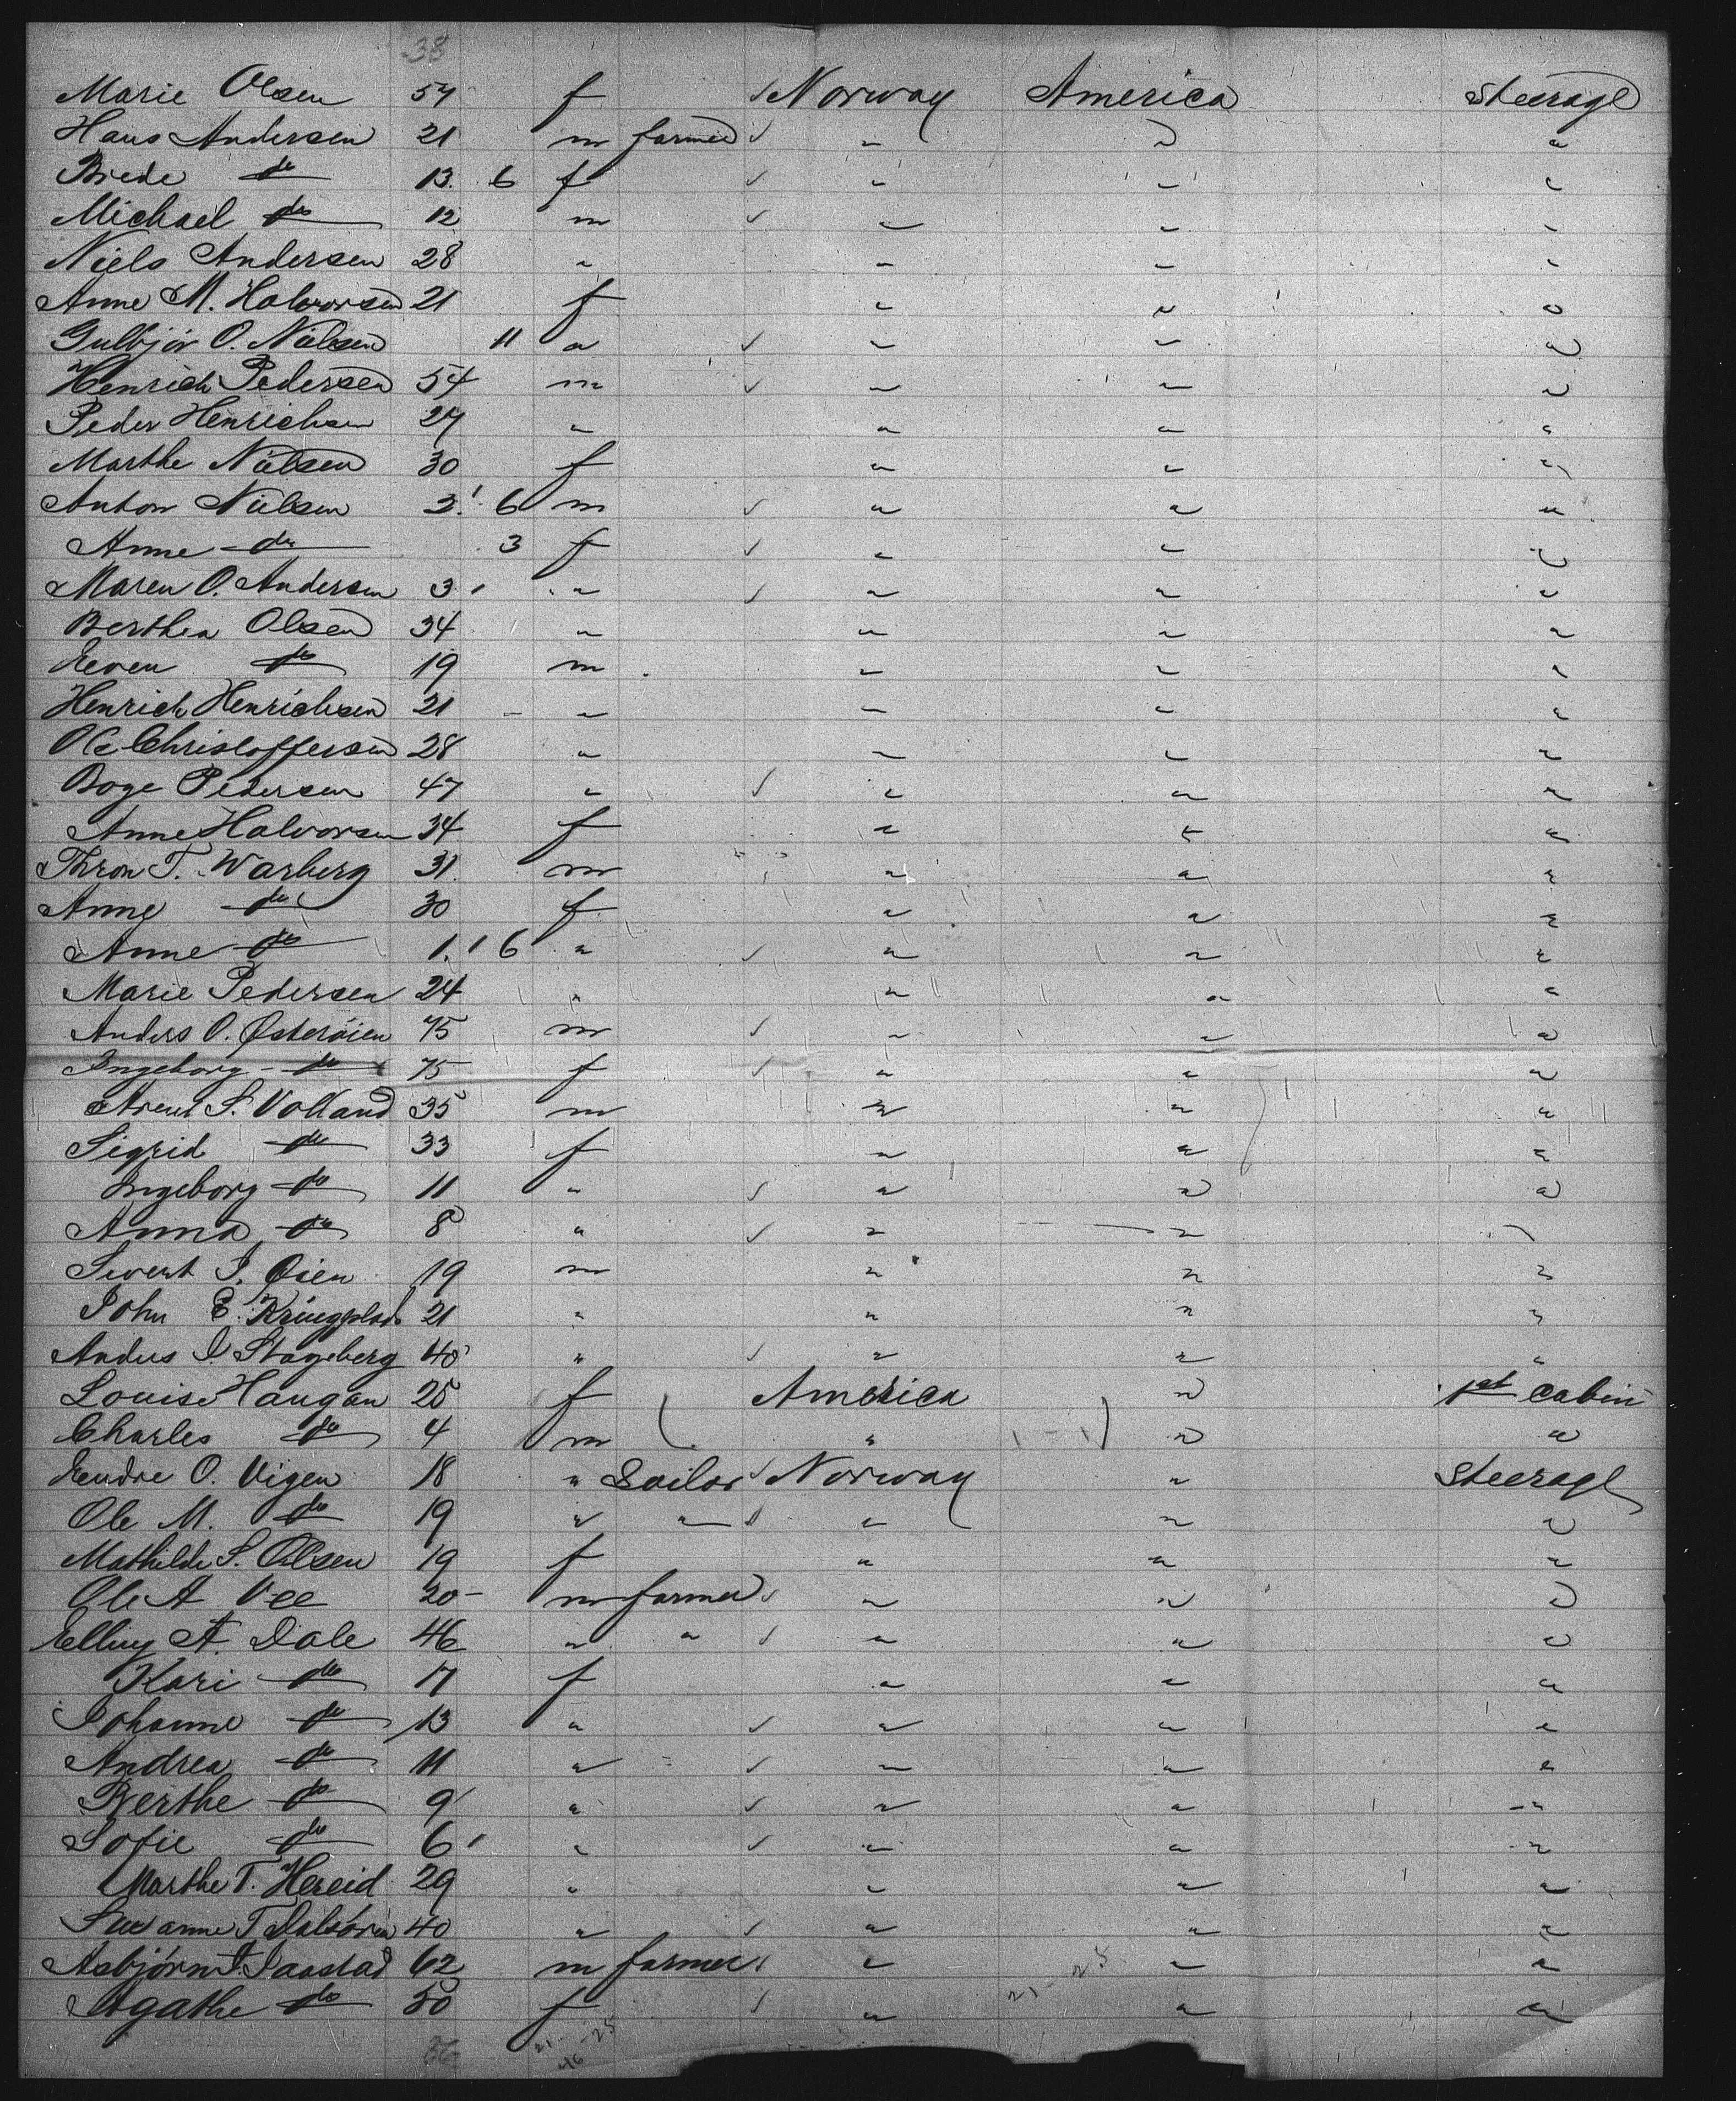 38
Marie Olsen 54 f Norway America Steerage
Hans Andersen 21 m farmer " " "
Brede do 13. 6 f " " "
Michael do 12 m " " "
Niels Andersen 28 " " " "
Anne M. Halvorsen 21 f " " "
Gulbjör O. Nielsen 11 " " " "
Henrich Pedersen 54 m " " "
Peder Henrichsen 27 " " " "
Marthe Nielsen 30 f " " "
Anton Nielsen 3. 6 m " " "
Anne do 3 f " " "
Maren O. Andersen 3 " " " "
Berthea Olsen 34 " " " "
Even do 19 m " " "
Henrich Henrichsen 21 " " " "
Ole Christoffersen 28 " " " "
Boge Pedersen 47 " " " "
Anne Halvorsen 34 f " " "
Thron T. Warberg 31 m " " "
Anne do 30 f " " "
Anne do 1. 6 " " " "
Marie Pedersen 24 " " " "
Anders O. Østeröien 75 m " " "
Ingeborg do 75 f " " "
Arent S. Volland 35 m " " "
Sigrid do 33 f " " "
Ingeborg do 11 " " " "
Anna do 8 " " " "
Sivert I. Øien 19 m " " "
John E. 21 " " " "
Anders I. Stageberg 40 " " " "
Louise Haugan 25 f America " 1st cabin
Charles do 4 m " " "
Endre O. Vigen 18 " Sailor Norway " Steerage
Ole M. do 19 " " " " "
Mathilde S. Olsen 19 f " " "
Ole A Vee 20 m farmer " " "
Elling A. Dale 46 " " " " "
Kari do 17 f " " "
Johanne do 13 " " " "
Andrea do 11 " " " "
Berthe do 9 " " " "
Sofie do 6 " " " "
Marthe T. Hereid 29 " " " "
Susanne T 40 " " " "
Asbjörn Saastad 62 m farmer " " "
Agathe do 50 f " " "